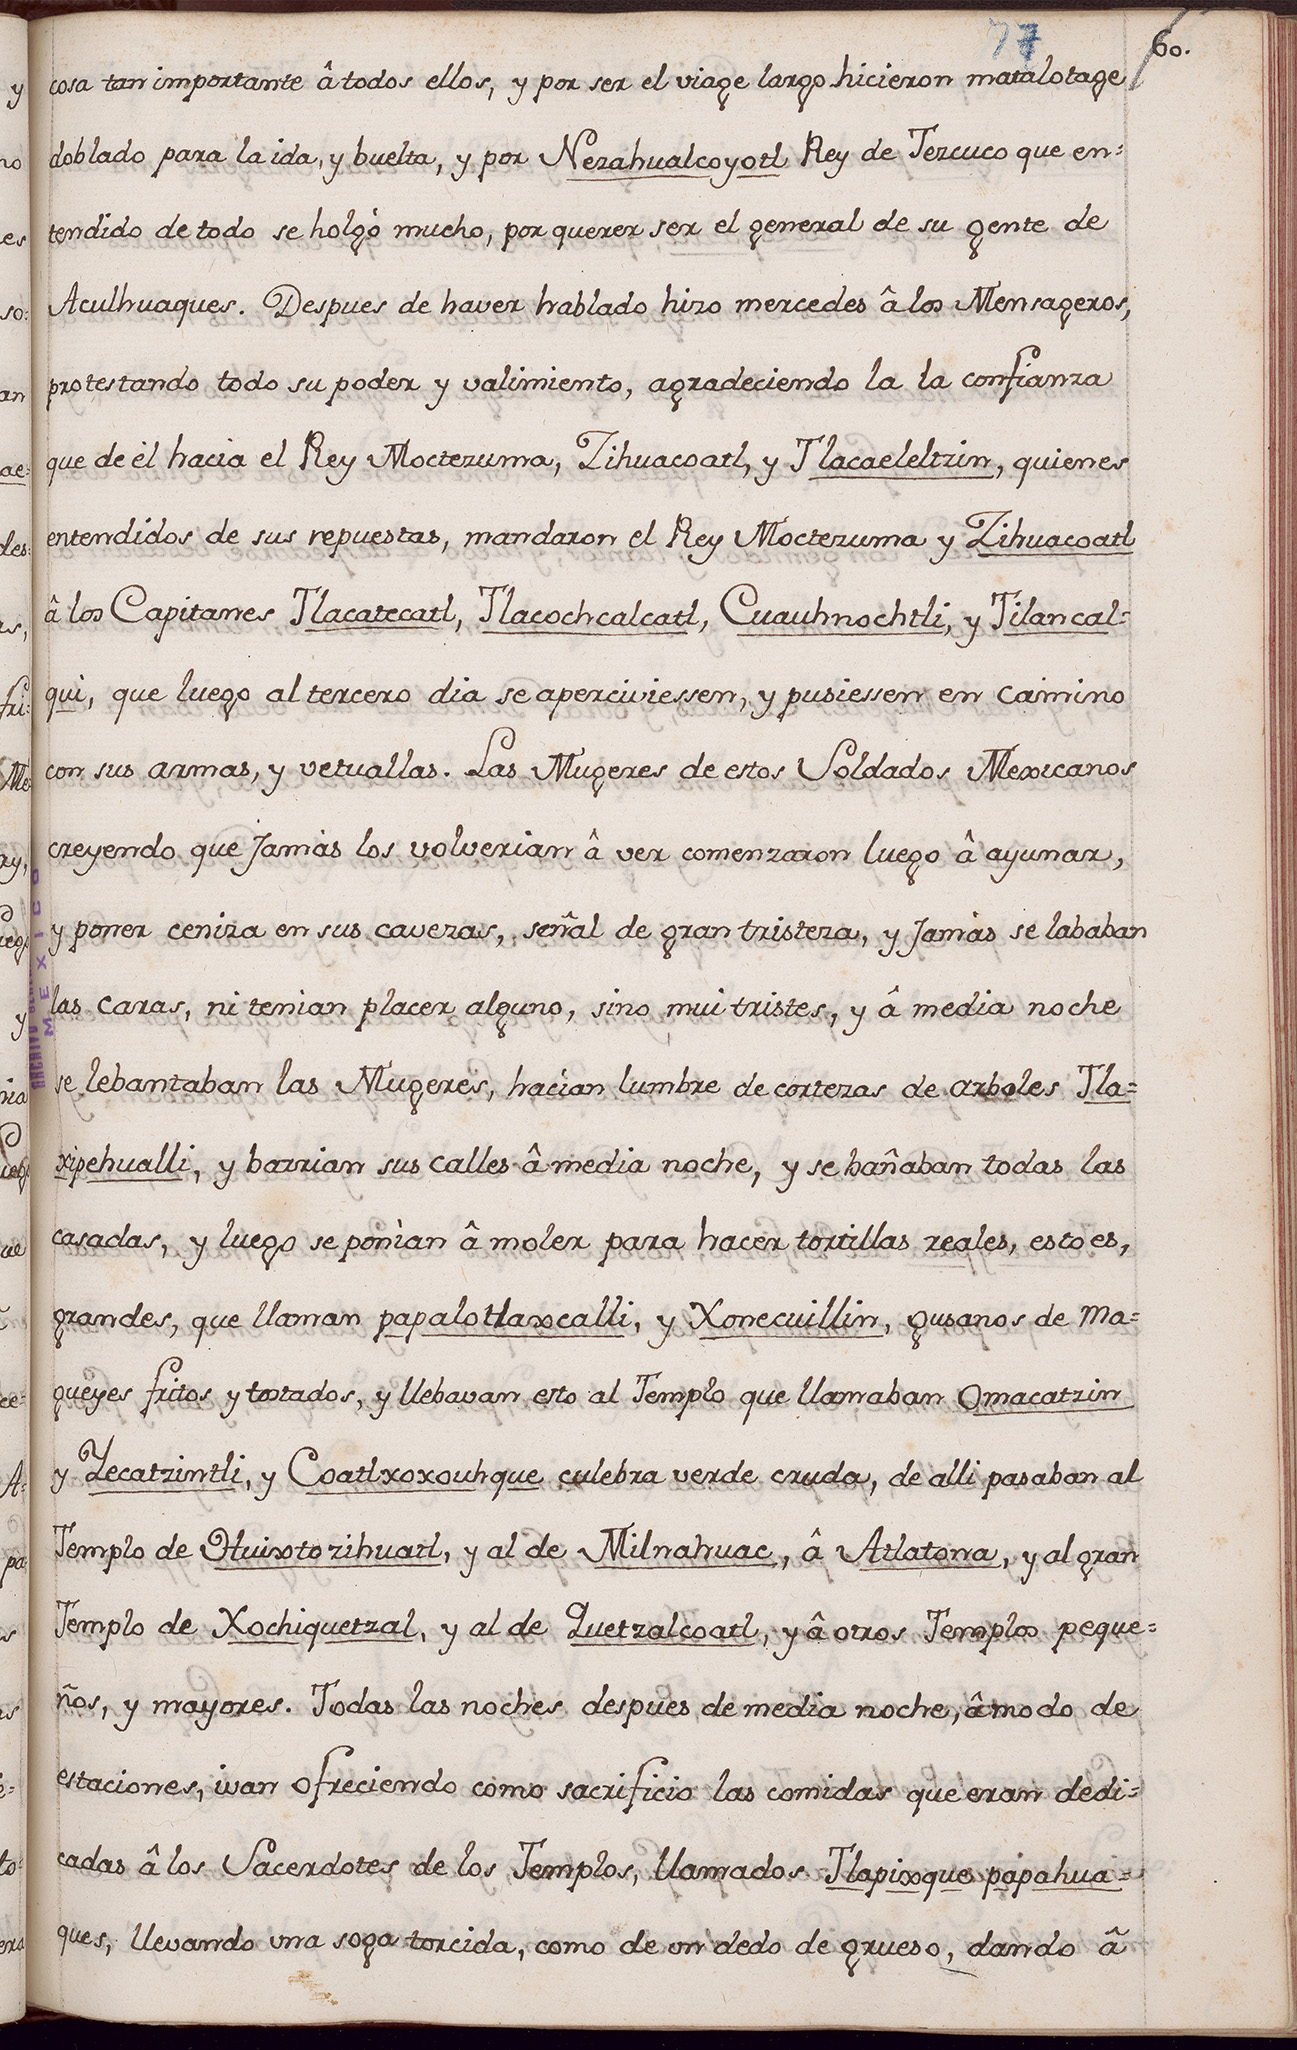 77 60.
cosa tan importante â todos ellos, y por ser el viage largo hicieron matalotage
doblado para la ida, y buelta, y por Nezahualcoyotl Rey de Tezcuco que en=
tendido de todo se holgó mucho, por querer ser el general de su gente de
Aculhuaques. Despues de haver hablado hizo mercedes â los Mensageros,
protestando todo su poder y valimiento, agradeciendo la la confianza
que de él hacia el Rey Moctezuma, Zihuacoatl, y Tlacaeleltzin, quienes
entendidos de sus repuestas, mandaron el Rey Moctezuma y Zihuacoatl
â los Capitanes Tlacatecatl, Tlacochcalcatl, Cuauhnochtli, y Tilancal=
qui, que luego al tercero dia se aperciviessen, y pusiessen en camino
con sus armas, y vetuallas. Las Mugeres de estos Soldados Mexicanos
creyendo que jamàs los volverian â ver comenzaron luego â ayunar,
y poner ceniza en sus cavezas, señal de gran tristeza, y jamàs se lababan
las caras, ni tenian placer alguno, sino mui tristes, y â media noche
se lebantaban las Mugeres, hacìan lumbre de cortezas de arboles Tla=
xipehualli, y barrian sus calles â media noche, y se bañaban todas las
casadas, y luego se ponìan â moler para hacer tortillas reales, esto es,
grandes, que llaman papalotlaxcalli, y Xonecuillin, gusanos de Ma=
gueyes fritos y tostados, y llebavan esto al Templo que llamaban Omacatzin
y Yecatzintli, y Coatlxoxouhque culebra verde cruda, de alli pasaban al
Templo de Huixtozihuatl, y al de Milnahuac, â Atlatona, y al gran
Templo de Xochiquetzal, y al de Quetzalcoatl, y â otros Templos peque=
ños, y mayores. Todas las noches despues de media noche, â modo de
estaciones, ivan ofreciendo como sacrificio las comidas que eran dedi=
cadas â los Sacerdotes de los Templos, llamados Tlapixque papahua=
ques, llevando vna soga torcida, como de vn dedo de grueso, dando â
MEXICO